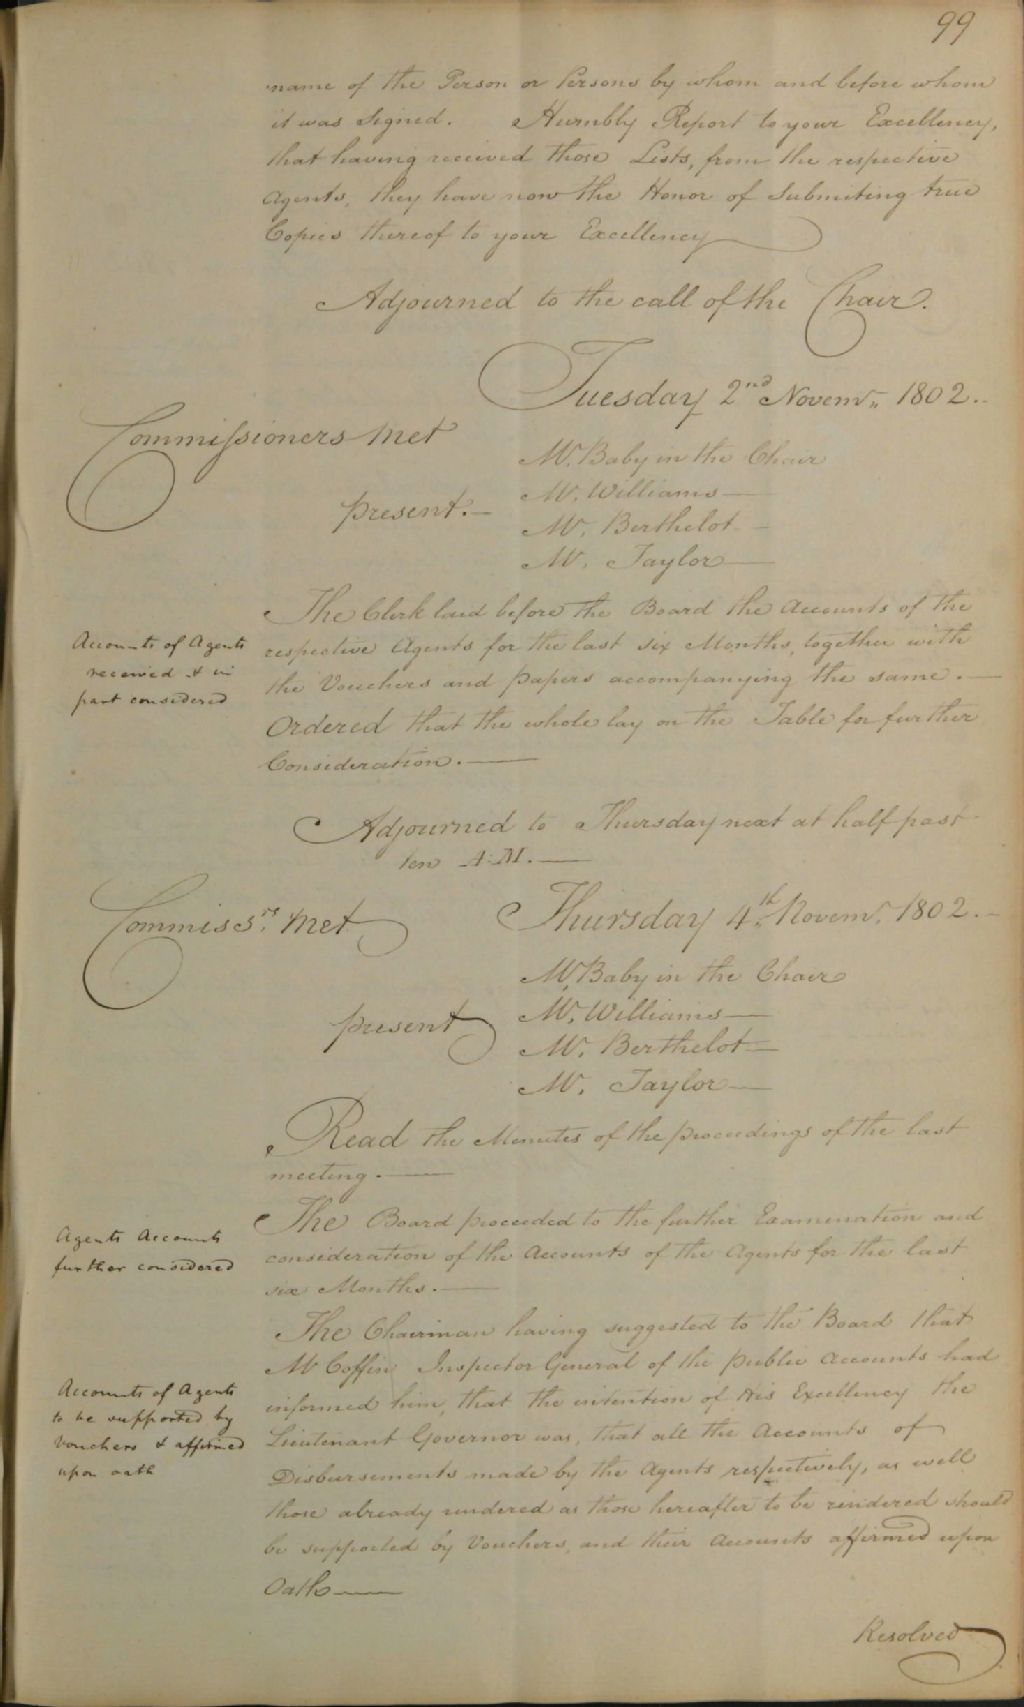 99
name of the Person or Persons by whom and before whom
it was Signed. Humbly Report to your Excellency,
that having received those Lists, from the respective
Agents, they have now the Honor of Submiting true
Copies thereof to your Excellency
Adjourned to the call of the Chair.
Tuesday 2nd Novemr. 1802.
Commissioners Met
Mr. Baby in the Chair
present.— Mr. Williams—
Mr. Berthelot—
Mr. Taylor—
The Clerk laid before the Board the Accounts of the
Accounts of Agents
respective Agents for the last six Months, together with
received & in
the Vouchers and papers accompanying the same.—
part considered
Ordered that the whole lay on the Table for further
Consideration.—
Adjourned to Thursday next at half past
ten A:M.—
Commissrs. Met
Thursday 4th. Novemr. 1802.—
Mr. Baby in the Chair
present Mr. Williams—
Mr. Berthelot—
Mr. Taylor—
Read the Minutes of the proceedings of the last
meeting.—
The Board proceeded to the further Examination and
Agents Accounts
consideration of the Accounts of the Agents for the last
further considered
six Months.—
The Chairman having suggested to the Board that
Mr Coffin Inspector General of the public Accounts had
Accounts of Agents
informed him, that the intention of His Excellency the
to be supported by
Lieutenant Governor was, that all the Accounts of
Vouchers & affirmed
Disbursements made by the Agents respectively, as well
upon oath
those already rendered as those hereafter to be rendered should
be supported by Vouchers, and their Accounts affirmed upon
Oath—
Resolved